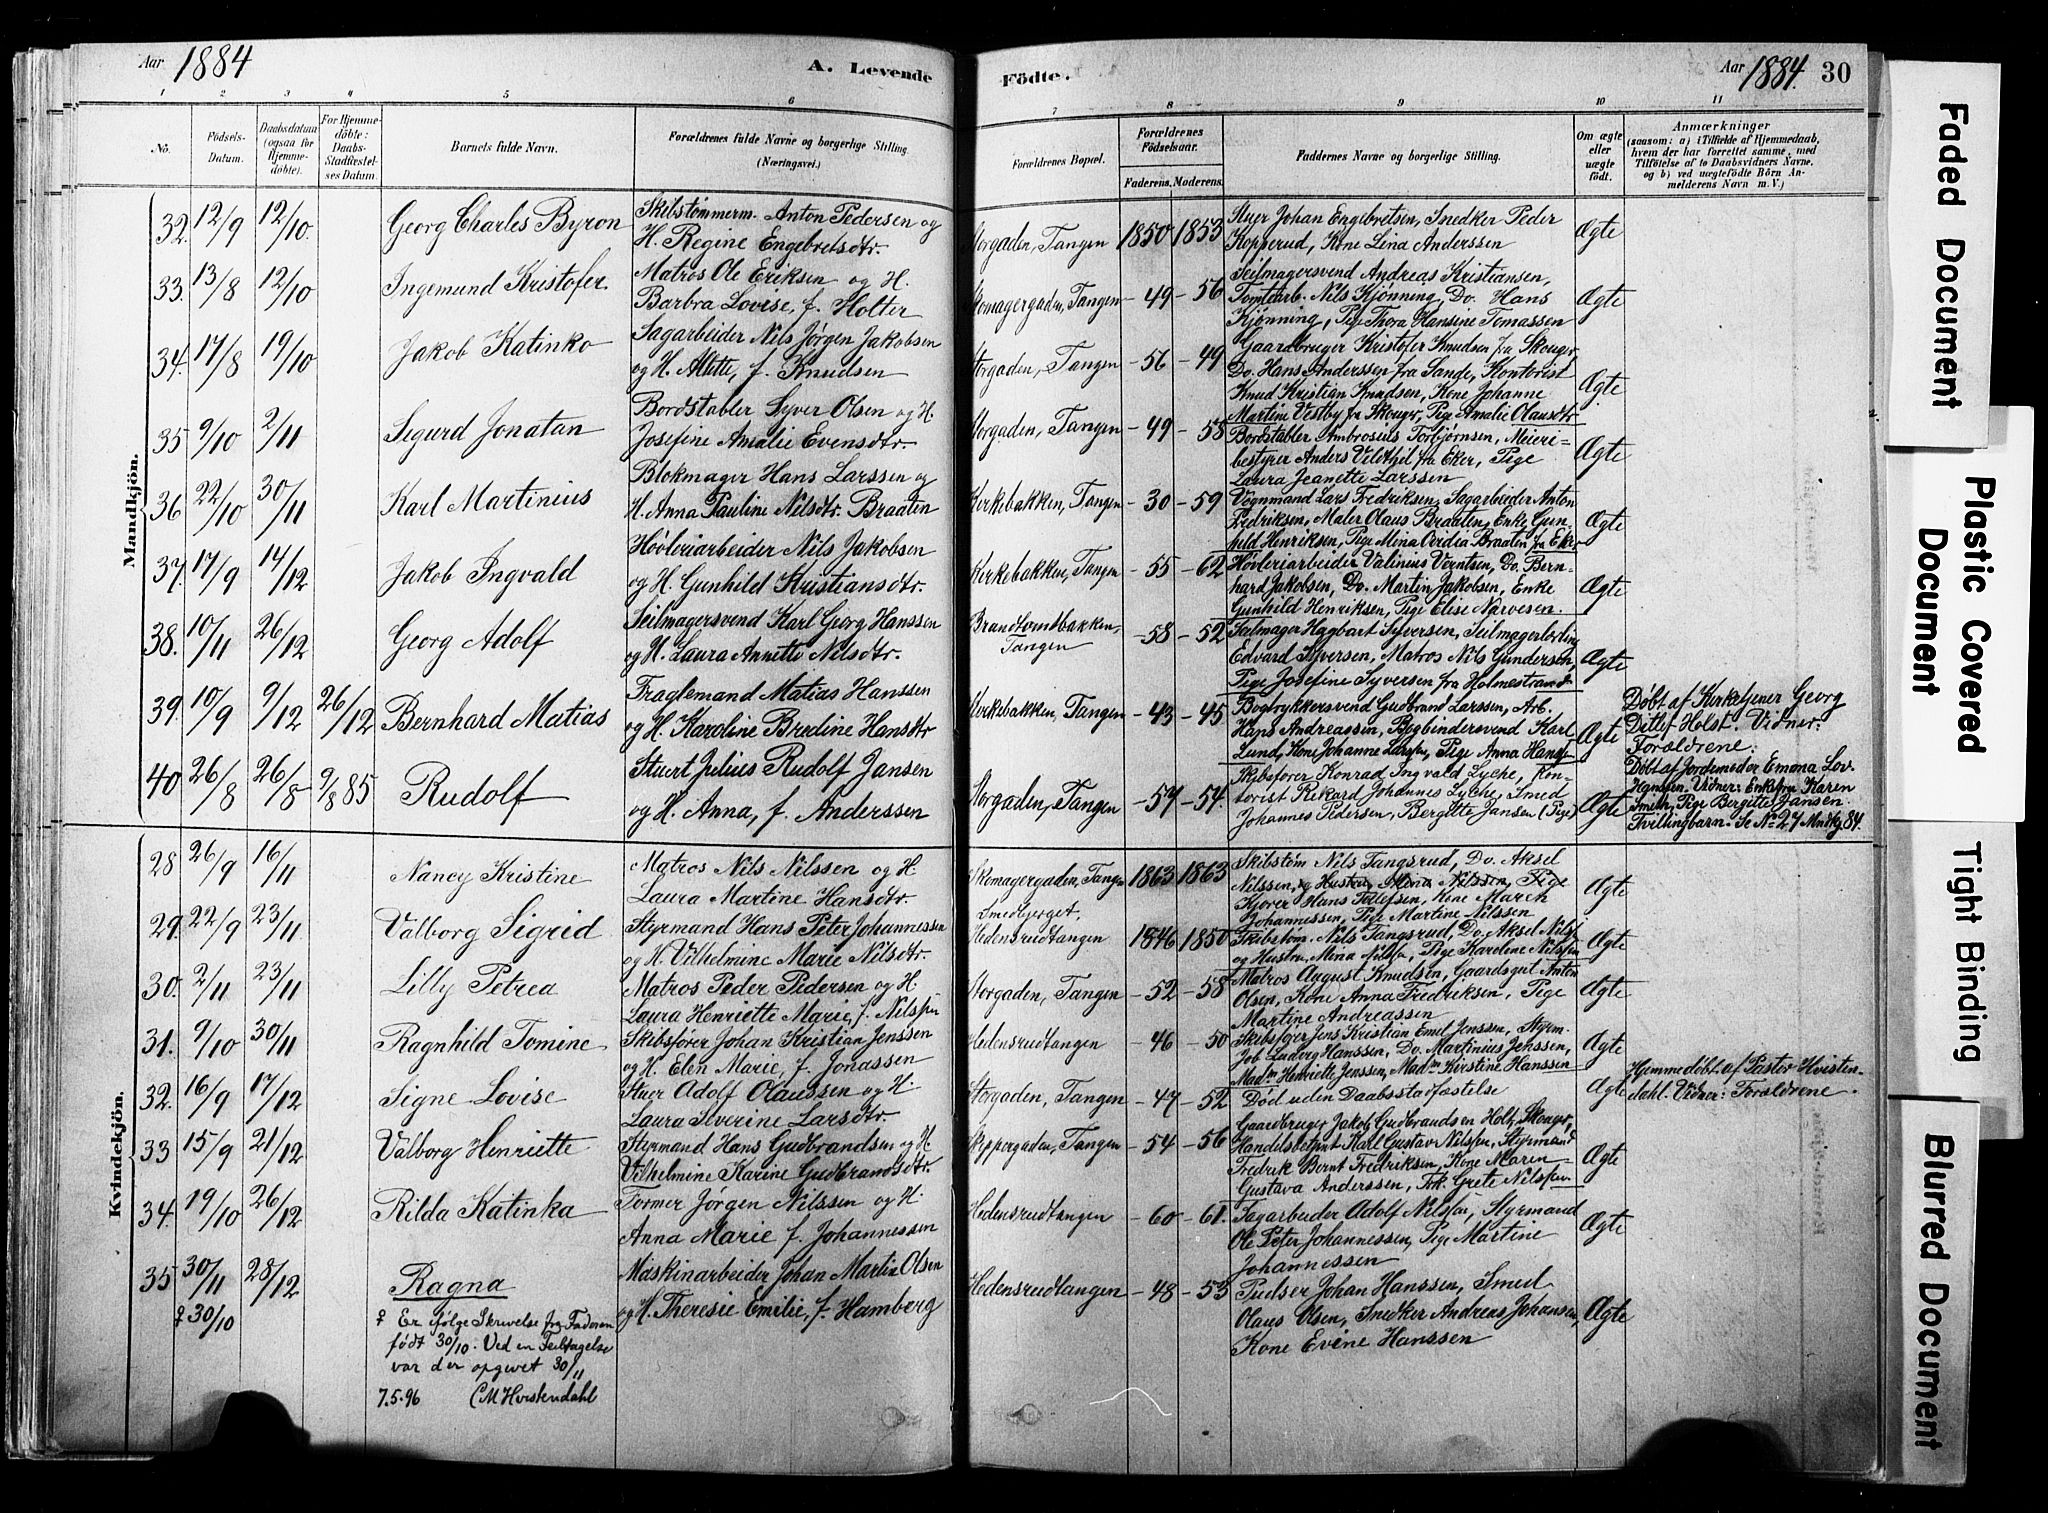 Aar 1884 A. Levende
1 2 3 4 5 6
No. Födsels-Datum. Daabsdatum (ogsaa for Hjemmedöbte). For Hjemmedöbte: Daabs-Stadfæstelses Datum. Barnets fulde Navn. Forældrenes fulde Navne og borgerlige Stilling. (Næringsvei.)
Mandkjön.
32. 12/9 12/10. Georg Charles Byron Skibstømmerm. Anton Pedersen og
H. Regine Engebretsdtr.
33. 13/8 12/10 Ingemund Kristofer Matros Ole Eriksen og H.
Barbra Lovise, f. Holter
34. 17/8 19/10 Jakob Katinko Sagarbeider Nils Jørgen Jakobsen
og H. Mette, f. Knudsen
35 9/10 2/11 Sigurd Jonatan Bordstabler Syver Olsen og H.
Josefine Amalie Evensdtr.
36 22/10 30/11 Karl Martinius Blokmager Hans Larssen og
H. Anna Pauline Nilsdtr. Braaten
37. 17/9 14/12 Jakob Ingvald Høvleriarbeider Nils Jakobsen
og H. Gunhild Kristiansdtr.
38. 10/11 26/12 Georg Adolf Seilmagersvend Karl Georg Hanssen
og H. Laura Annette Nilsdtr.
39. 10/9 9/12 26/12 Bernhard Matias Fragtemand Matias Hanssen
og H. Karoline Bredine Hansdtr
40 26/8 26/8 9/8 85 Rudolf Stuert Julius Rudolf Jansen
og H. Anna, f. Anderssen
Kvindekjön.
28 26/9 16/11 Nancy Kristine Matros Nils Nilssen og H.
Laura Martine Hansdtr.
29. 22/9 23/11 Valborg Sigrid Styrmand Hans Peter Johannessen
og H. Vilhelmine Marie Nilsdtr.
30. 2/11 23/11 Lilly Petrea Matros Peder Pedersen og H.
Laura Henriette Marie, f. Nilssen
31. 9/10 30/11 Ragnhild Tomine Skibsfører Johan Kristian Jenssen
og H. Elen Marie, f. Jonassen
32. 16/9 17/12 Signe Lovise Stuer Adolf Olaussen og H.
Laura Severine Larsdtr.
33 15/9 21/12 Valborg Henriette Styrmand Hans Gudbrandsen og H.
Vilhelmine Karine Gudbrandsdtr.
34. 19/10 26/12 Rilda Katinka Former Jørgen Nilssen og H.
Anna Marie f. Johannessen
35 30/11 28/12 Ragna Maskinarbeider Johan Martin Olsen
og H. Theresie Emilie, f. Hamberg
♀ 30/10 ♀ Er ifølge Skrivelse fra Faderen
født 30/10. Ved en Feiltagelse
var der opgivet 30/11
7.5.96 CM Hvistendahl
Födte. Aar 1884. 30
7 8 9 10 11
Forældrenes Bopæl. Forældrenes Födselsaar. Faderens. Moderens. Faddernes Navne og borgerlige Stilling. Om ægte eller uægte födt. Anmærkninger
(saasom: a) i Tilfælde af Hjemmedaab, hvem der har forrettet samme, med Tilföielse af to Daabsvidners Navne. og b) ved uægtefödte Börn Anmelderens Navn m. V.)
Storgaden, Tangen 1850 1853 Stuer Johan Engebretsen, Snedker Peder
Kopperud, Kone Lina Anderssen Ægte
Skomagergaden, Tangen -49 -56 Seilmagersvend Andreas Kristiansen,
Tomtearb. Nils Kjønning, Do. Hans
Kjønning, Pige Thora Hansine Tomassen Ægte
Storgaden, Tangen -56 -49 Gaardbruger Kristofer Knudsen fra Skouger,
Do. Hans Anderssen fra Sande, Kontorist
Knud Kristian Knudsen, Kone Johanne
Martine Vestby fra Skouger, Pige Amalie Olausdtr Ægte
Storgaden, Tangen -49 -58 Bordstabler Ambrosius Torbjørnsen, Meieri-
bestyrer Anders Vilethil fra Eker, Pige
Laura Jeanette Larssen Ægte
Kirkebakken, Tangen -30 -59 Vognmand Lars Fredriksen, Sagarbeider Anton
Fredriksen, Maler Olaus Braaten, Enke Gun-
hild Henriksen, Pige Mina Ovidia Braaten fra Eker Ægte
Kirkebakken, Tangen -55 -62 Høvleriarbeider Valinius Verntsen, Do. Bern-
hard Jakobsen, Do. Martin Jakobsen, Enke
Gunhild Henriksen, Pige Elise Narvesen. Ægte
Brandtomtbakken,
Tangen -58 -52 Salmager Hagbart Syversen, Seilmagerlærling
Edvard Syversen, Matros Nils Gundersen,
Pige Josefine Syversen fra Holmestrand Ægte
Kirkebakken, Tangen -43 -45 Bogtrykkersvend Gudbrand Larssen, Arb.
Hans Andreassen, Bogbindersvend Karl
Lund, Kone Johanne Larssen, Pige Anna Hans Ægte
Døbt af Kirketjener Georg
Ditlef Holst. Vidner:
Forældrene:
Storgaden, Tangen -57 -54. Skibsfører Konrad Ingvald Lyche, Kon-
torist Rikard Johannes Lyche, Smed
Johannes Pedersen, Bergitte Jansen (Pige) Ægte
Døbt af Jordemoder Emma Lov.
Hanssen. Vidner: Enkefru Karen
Smeth, Pige Bergitte Jansen.
Tvillingbarn. Se No 27 Mndkj. 84.
Skomagergaden, Tangen 1863 1863 Skibstøm Nils Tangsrud, Do. Aksel
Nilssen, og Hustru Mina Nilssen, Pige
Kjører Hans Tollefsen, Kone Maren
Johannessen, Pige Martine Nilssen Ægte
Smedbjerget,
Hedensrudtangen 1846 1850 Skibstøm. Nils Tangsrud, Do. Aksel Nilss
og Hustru Mina Nilssen, Pige Karoline Nilssen Ægte
Storgaden, Tangen -52 -58 Matros August Knudsen, Gaardsgut Anton
Olsen, Kone Anna Fredriksen, Pige
Martine Andreassen Ægte
Hedensrudtangen -46 -50 Skibsfører Jens Kristian Emil Jenssen, Styrm.
Job Ludvig Hanssen, Do. Martinius Jenssen,
Madm Henriette Jenssen, Madm Kirstine Hanssen Ægte
Storgaden, Tangen -47 -52 Død uden Daabsstadfæstelse Ægte Hjemmedøbt af Pastor Hvisten-
dahl. Vidner: Forældrene.
Skippergaden, Tangen -54 -56 Gaardbruger Jakob Gudbrandsen Holt, Skouger,
Handelsbetjent Karl Gustav Nilssen, Styrmand
Fredrik Bernt Fredriksen, Kone Maren
Gustava Anderssen, Frk. Grete Nilssen Ægte
Hedensrudtangen -60 -61. Sagarbeider Adolf Nilssen, Styrmand
Ole Peter Johannessen, Pige Martine
Johannessen Ægte
Hedensrudtangen -48 -53 Pudser Johan Hanssen, Smed
Olaus Olsen, Snedker Andreas Johansen,
Kone Evine Hanssen Ægte
Faded Document
Plastic Covered Document
Tight Binding
Blurred Document